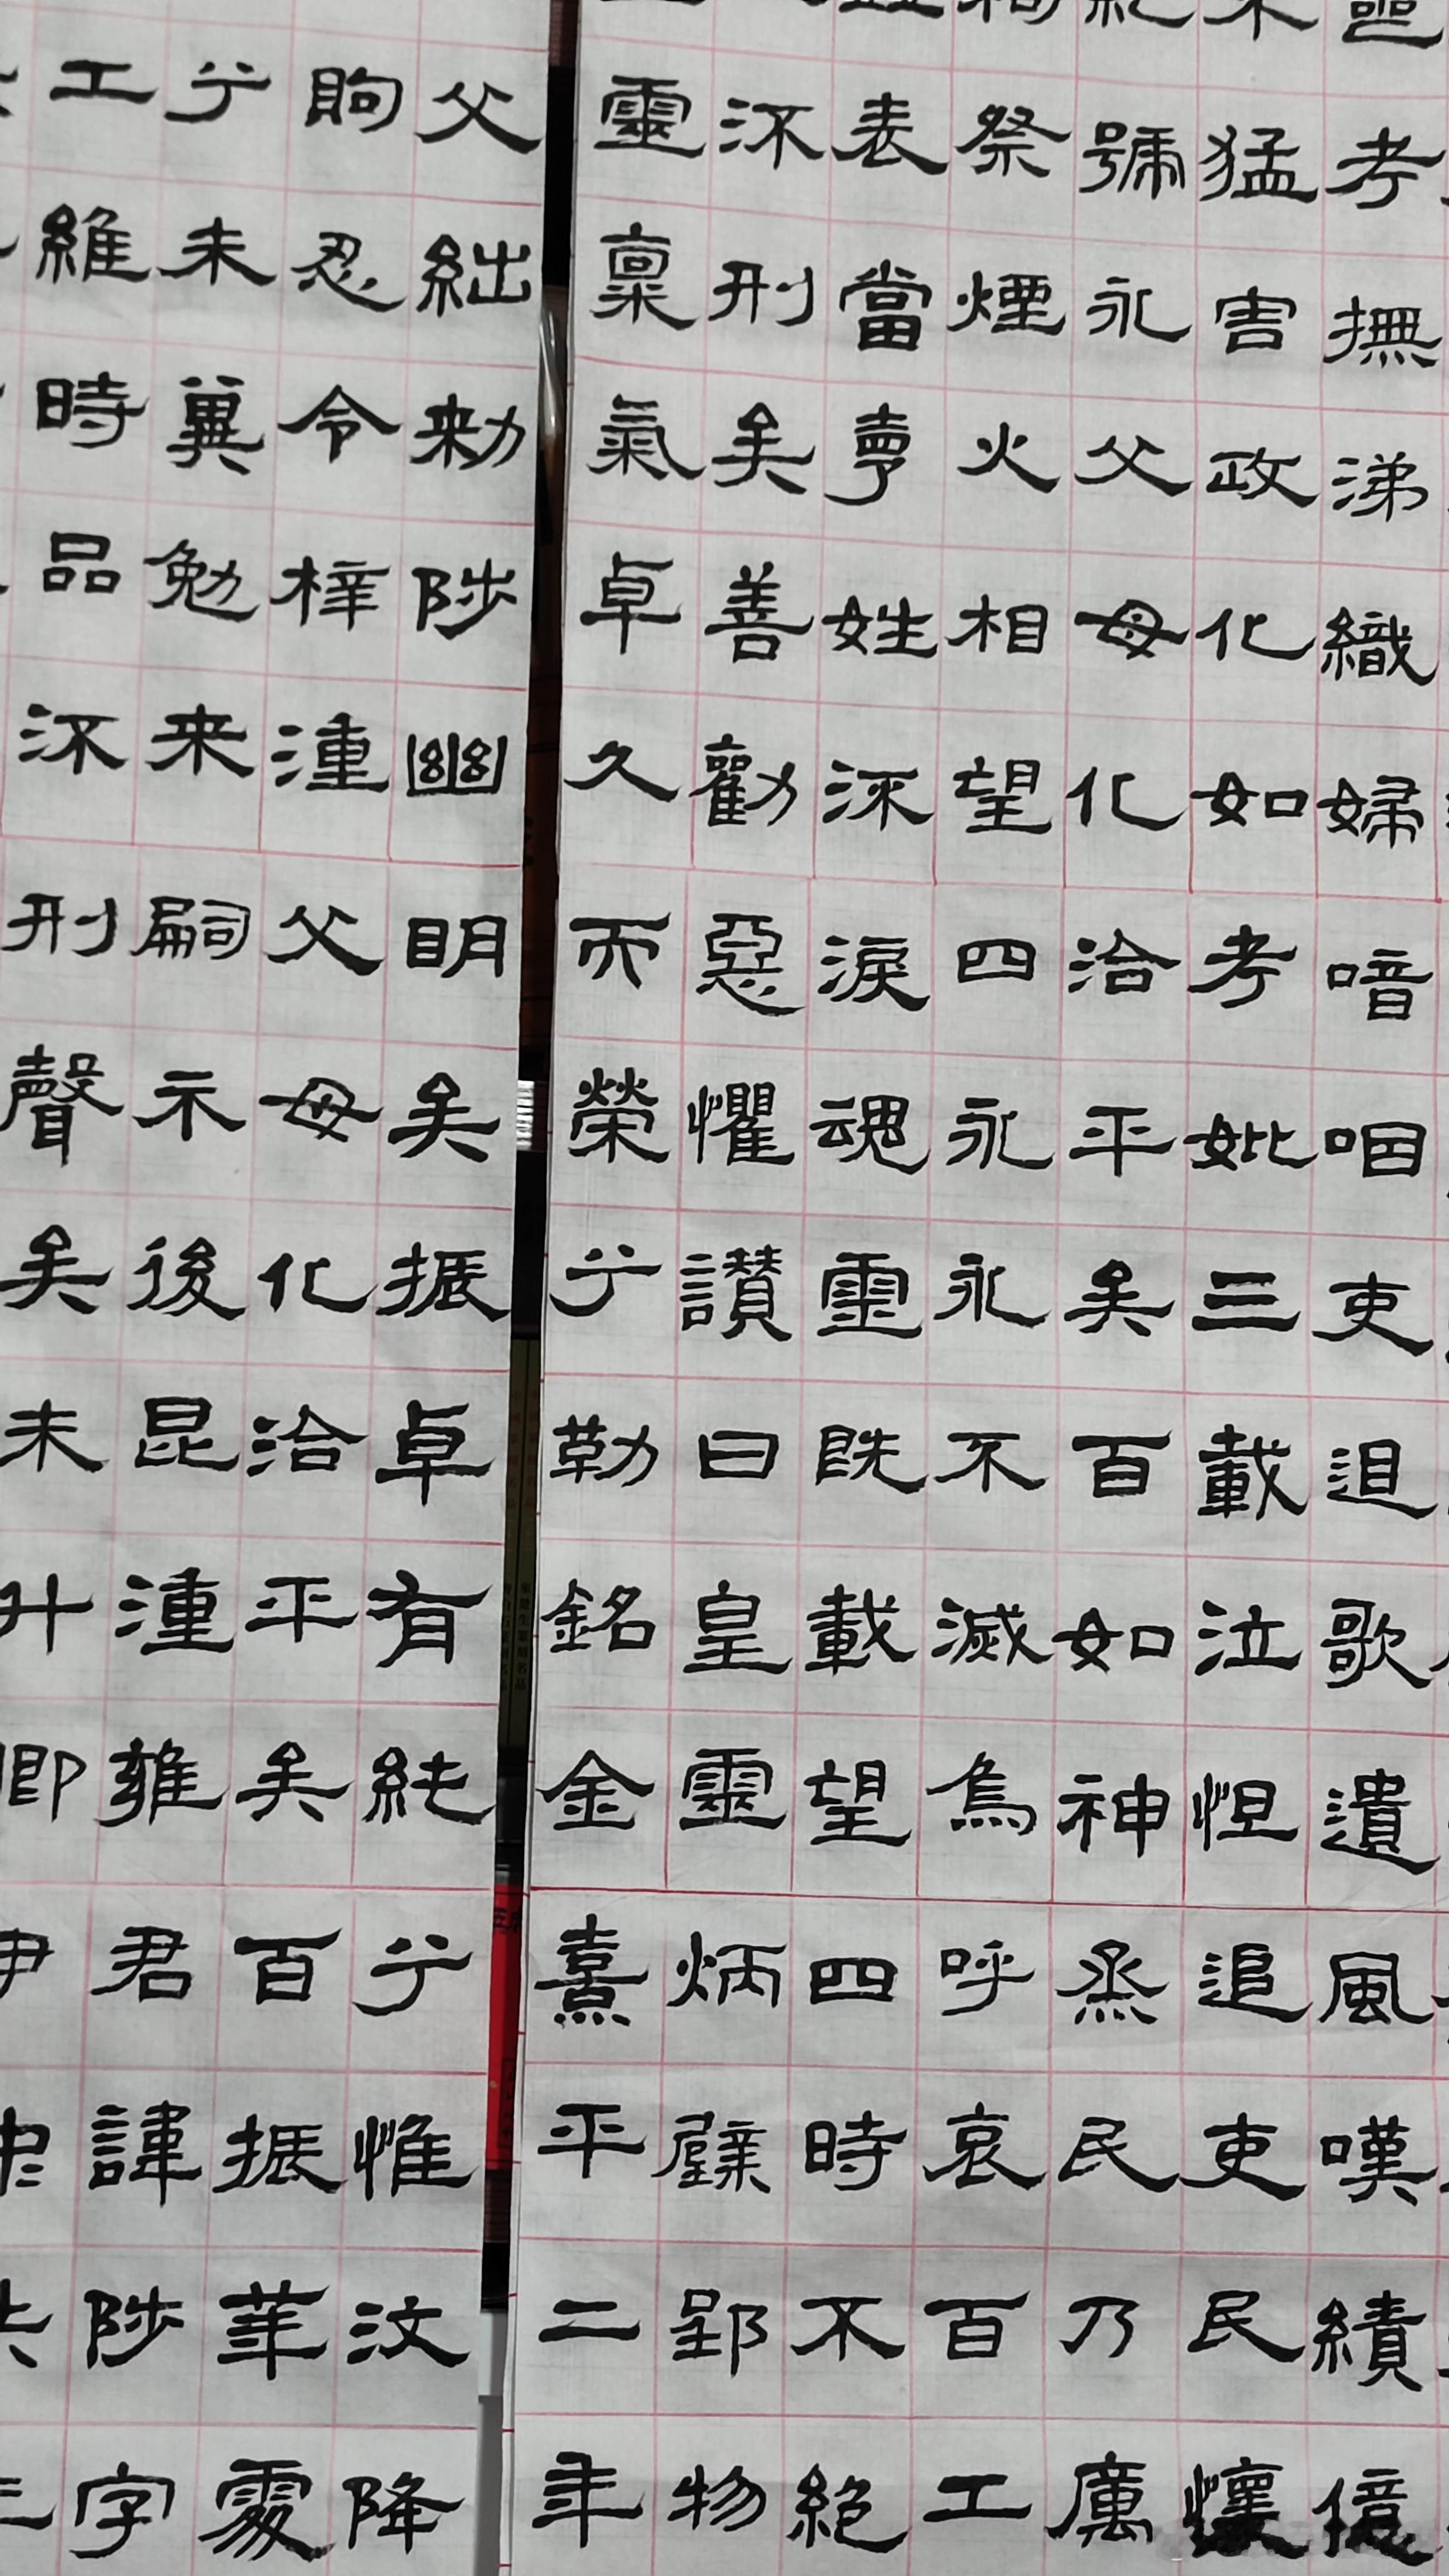 考撫涕織婦喑咽吏歌遺風嘆績億
猛害政化如考妣三載泣怛追吏民懷
號永父母化洽平矣百如神烝民乃厲
祭煙火相望四永永不滅烏呼哀百工
表當享姓深淚魂靈既載望四時不絕
沵刑矣善勸惡懼讚曰皇靈炳璧郢物
靈稟氣卓久而榮兮勒銘金熹平二年
父絀勑陟幽明矣振卓有純兮惟汶降
眴忍令梓湩父母化洽平矣百振華處
兮未冀勉来嗣示後昆湩雍君諱陟字
工維時品沵刑聲矣未升卿尹